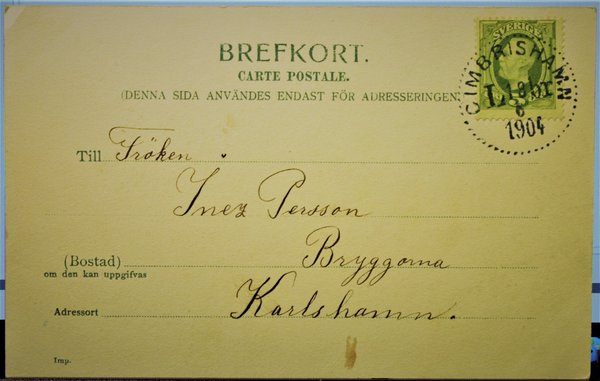 BREFKORT.
CARTE POSTALE.
(DENNA SIDA ANVÄNDES ENDAST FÖR ADRESSERINGEN
SVERIGE
CIMBRISHAMN
1904
Till Fröken
Inez Persson
(Bostad) Bryggorna
om den kan uppgifvas
Adressort Karlshamn.
Imp.